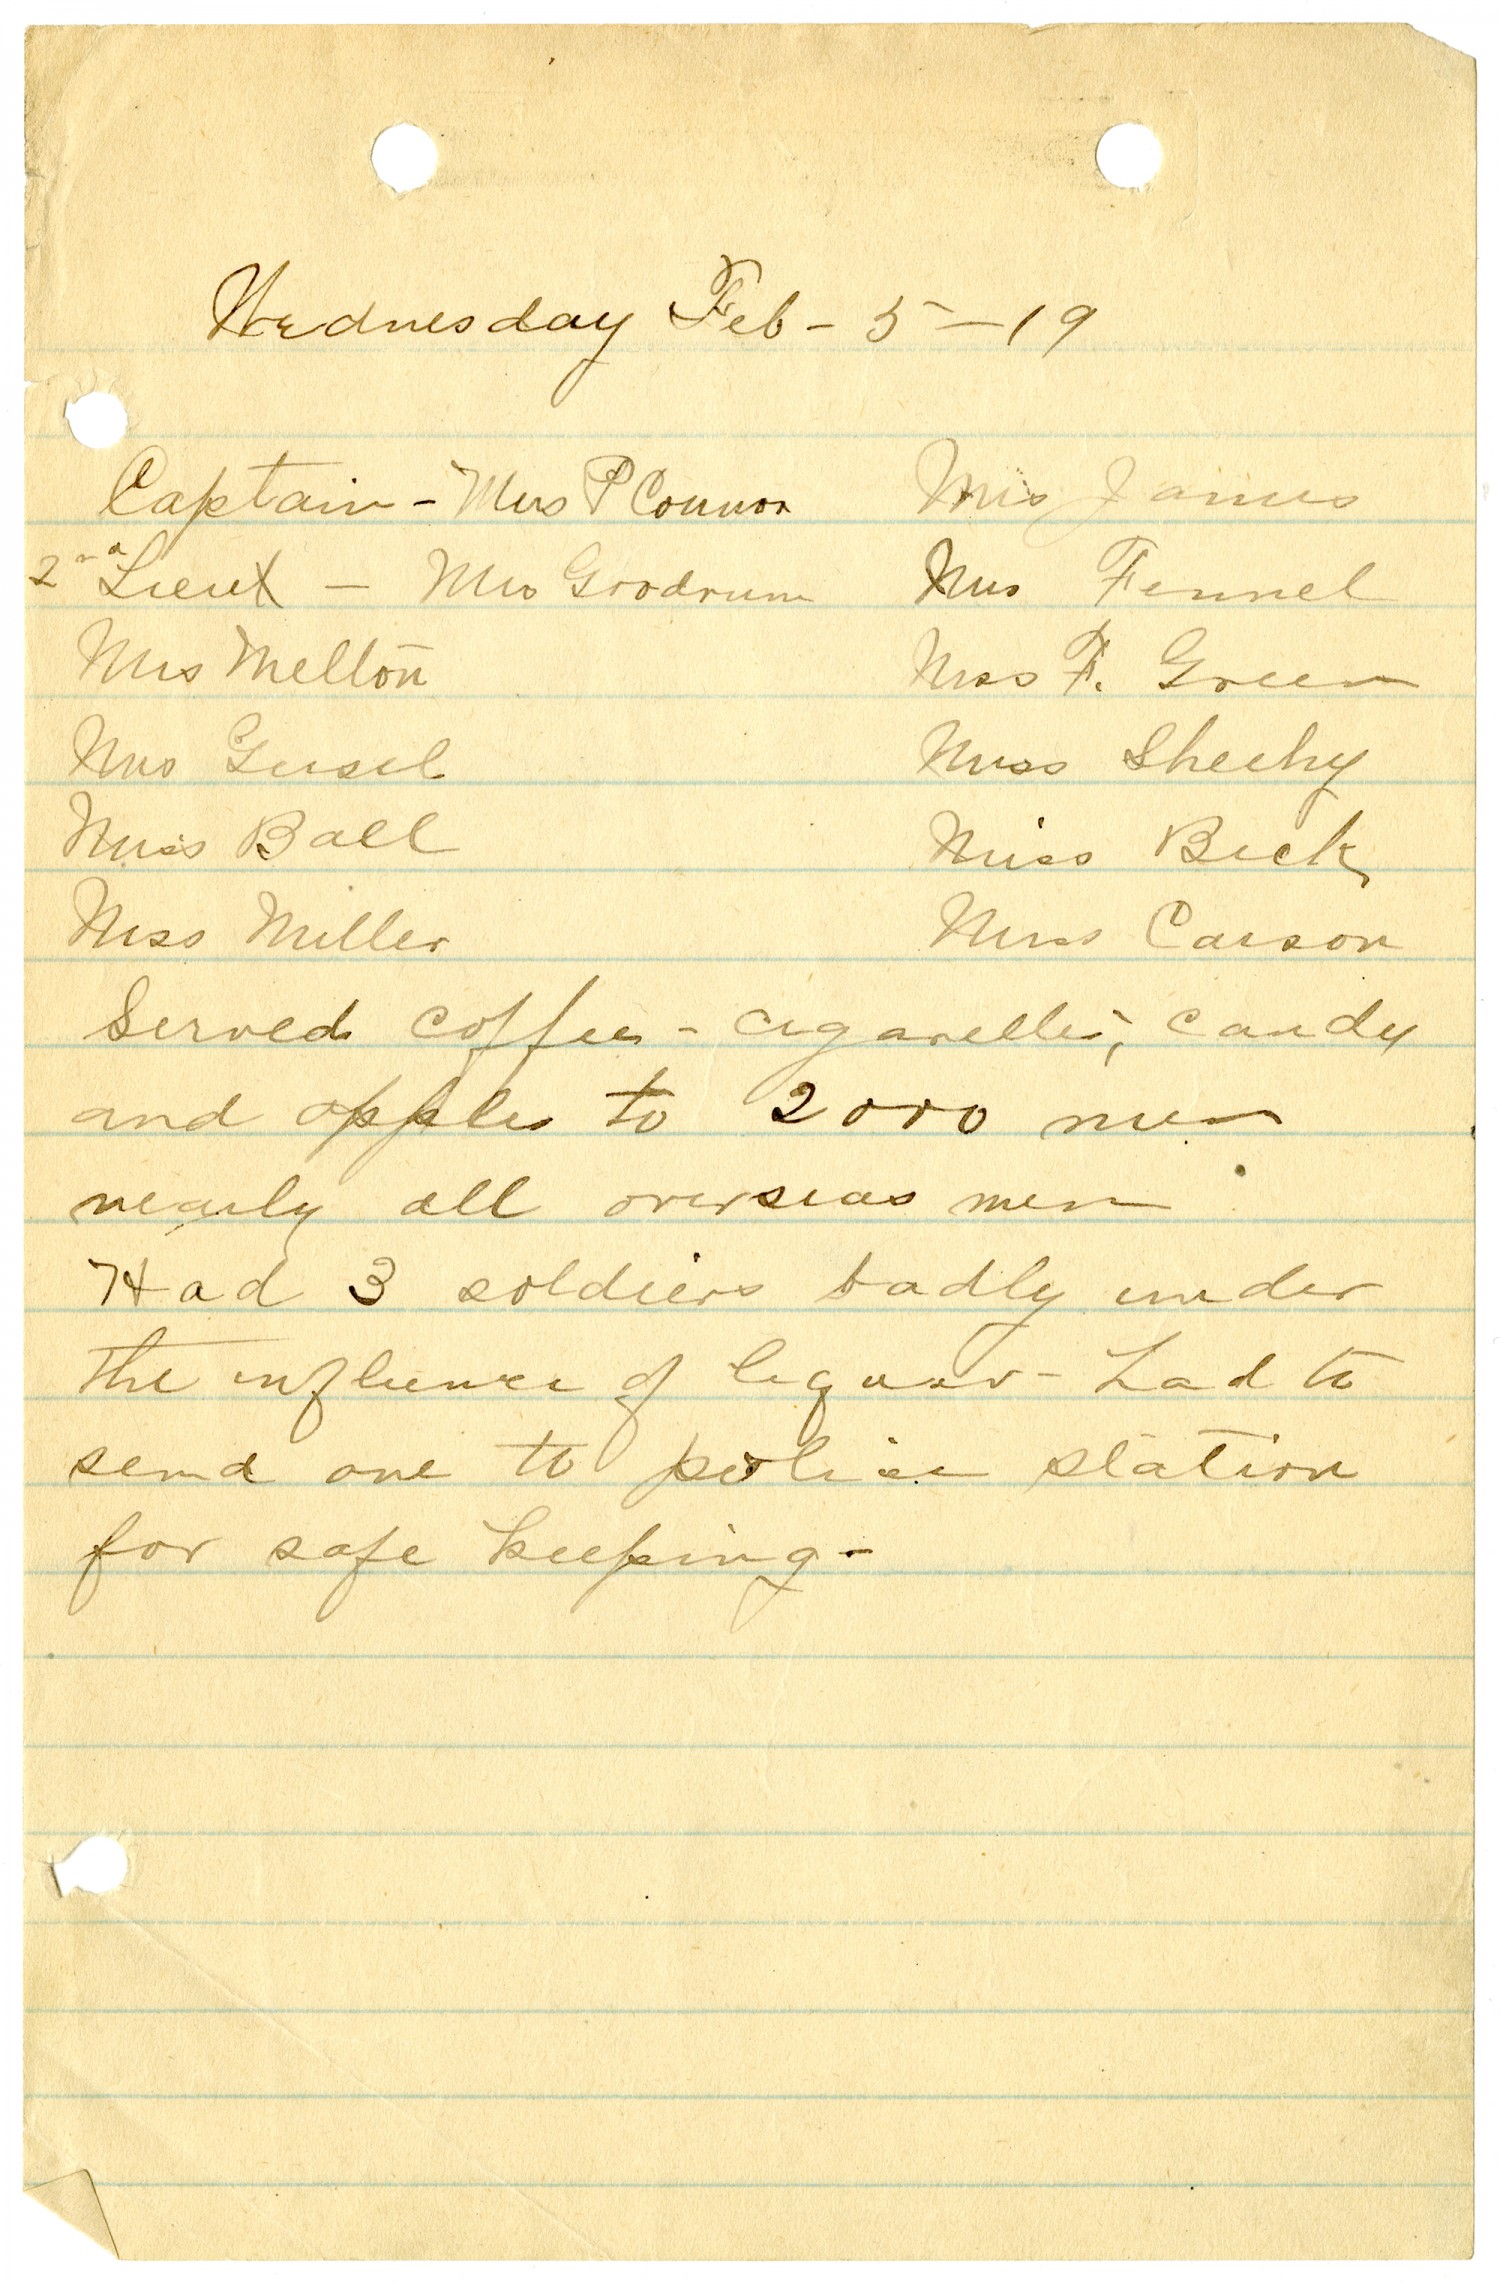 Wednesday Feb - 5 - 19
Captain - Mrs P Connor Mrs James
2nd Lieut - Mrs Goodrum Mrs Fennel
Mrs Melton Miss F. Green
Mrs Geisel Miss Sheehy
Miss Ball Miss Beck
Miss Miller Miss Carson
Served coffee - cigarettes, candy
and apples to 2000 men
nearly all overseas men
Had 3 soldiers badly under
the influence of liquor - had to
send one to police station
for safe keeping -